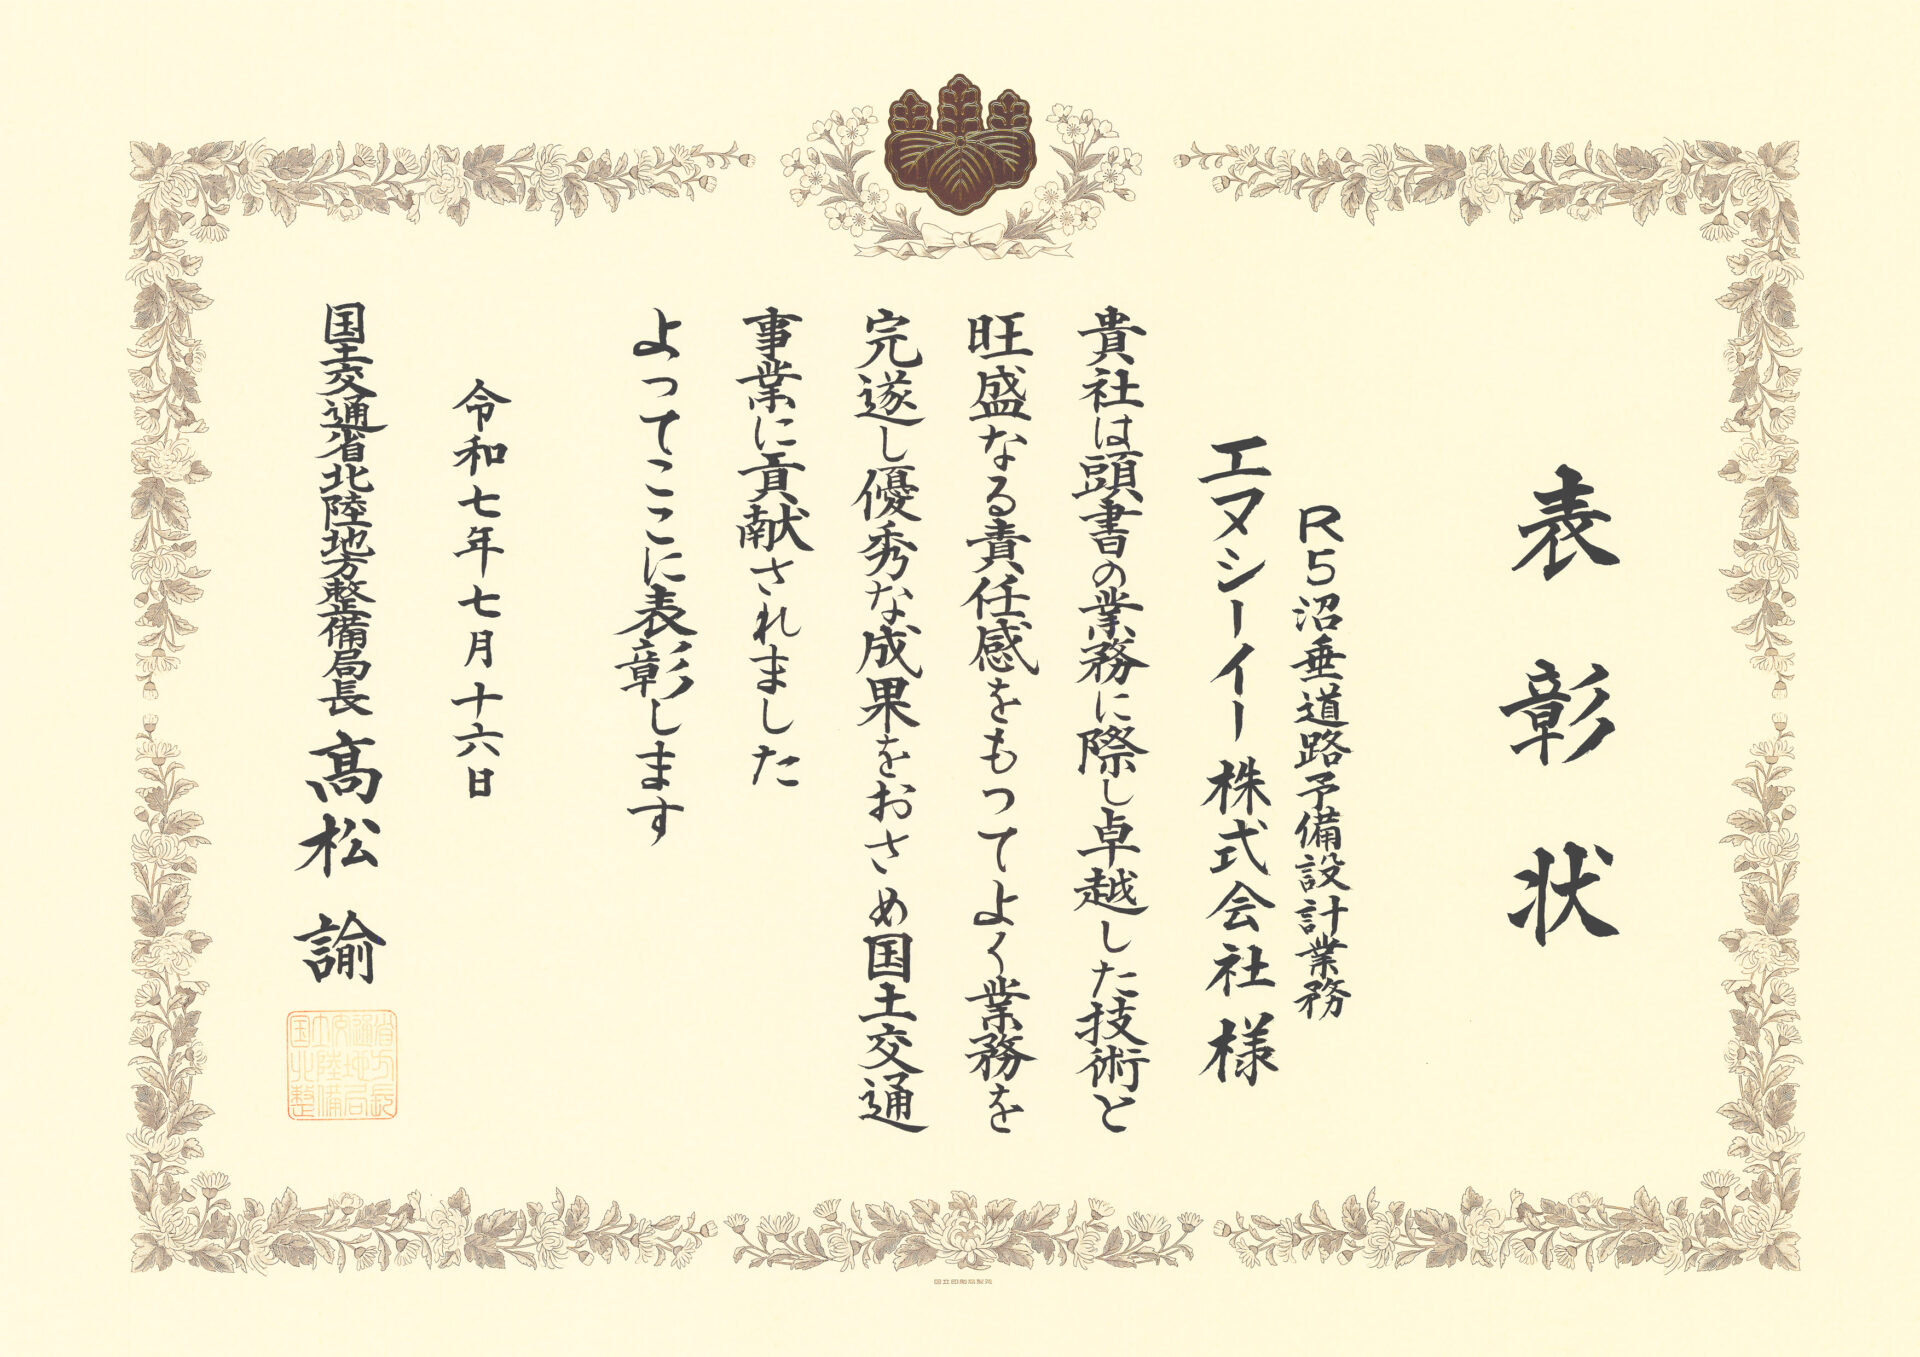 表彰状
R5沼垂道路予備設計業務
エヌシーイー株式会社様
貴社は頭書の業務に際し卓越した技術と
旺盛なる責任感をもってよく業務を
完遂し優秀な成果をおさめ国土交通
事業に貢献されました
よってここに表彰します
令和七年七月十六日
国土交通省北陸地方整備局長 髙松諭
国土交通省
北陸地方
整備局長
国立印刷局製造